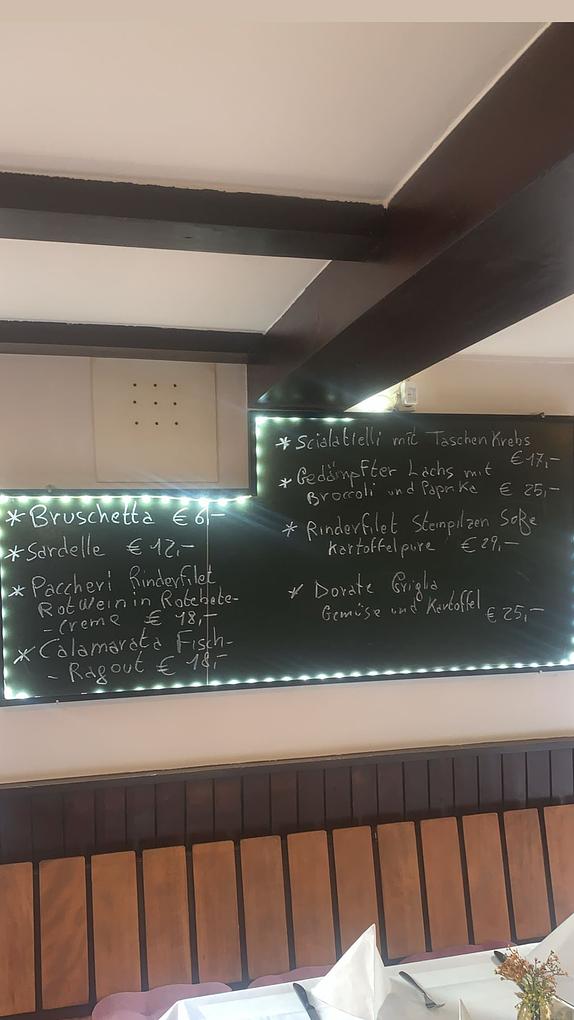 * Bruschetta € 6,-
* Sardelle € 12,-
* Paccheri Rinderfilet
Rotwein in Rotebete-
-creme € 18,-
* Calamarata Fisch-
- Ragout € 18,-
* Scialatielli mit TaschenKrebs
€ 17,-
* Gedämpfter Lachs mit
Broccoli und Paprika € 25,-
* Rinderfilet Steinpilzen Soße
Kartoffelpure € 29,-
* Dorate Griglia
Gemüse und Kartoffel € 25,-